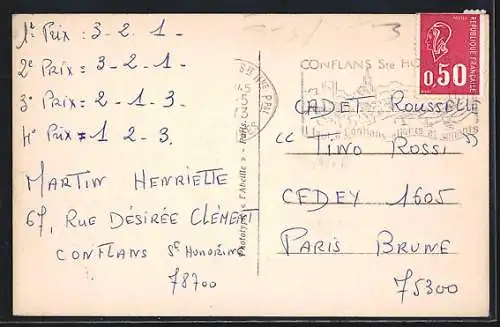 1er Prix : 3 - 2. 1 -
2e Prix = 3 - 2 - 1 -
3e Prix = 2 - 1 - 3 -
4e Prix = 1 2 - 3.
MARTIN HENRIETTE
67, RUE DÉSIRÉE CLÉMENT
CONFLANS Ste HONORINE
78700
CONFLANS Ste HO
RÉPUBLIQUE FRANÇAISE
0,50
CADET ROUSSELLE
"TINO ROSSI"
CEDEX 1605
PARIS BRUNE
75300